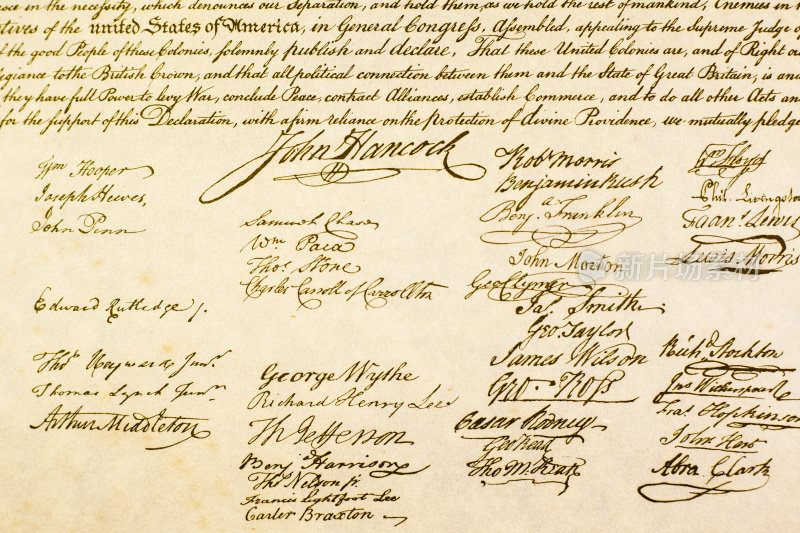 ace in the necessity, which denounces our Separation, and hold them, as we hold the rest of mankind, Enemies in
tives of the united States of America, in General Congress, Assembled, appealing to the Supreme Judge of
f the good People of these Colonies, solemnly publish and declare, That these United Colonies are, and of Right ou
egiance to the British Crown, and that all political connection between them and the State of Great Britain, is an
they have full Power to levy War, conclude Peace, contract Alliances, establish Commerce, and to do all other Acts an
for the support of this Declaration, with a firm reliance on the Protection of divine Providence, we mutually pledge
John Hancock
Wm Hooper
Joseph Hewes,
John Penn
Edward Rutledge J.
Thos Heyward Junr.
Thomas Lynch Junr.
Arthur Middleton
Samuel Chase
Wm Paca
Thos Stone
Charles Carroll of Carrollton
George Wythe
Richard Henry Lee
Th Jefferson
Benj Harrison
Thos Nelson jr
Francis Lightfoot Lee
Carter Braxton
Robt Morris
Benjamin Rush
Benja Franklin
John Morton
Geo Clymer
Jas Smith
Geo Taylor
James Wilson
Geo. Ross
Caesar Rodney
Geo Read
Tho M:Kean
Wm Floyd
Phil. Livingston
Frans. Lewis
Lewis Morris
Richd Stockton
Jno Witherspoon
Fras Hopkinson
John Hart
Abra Clark
新片场素材